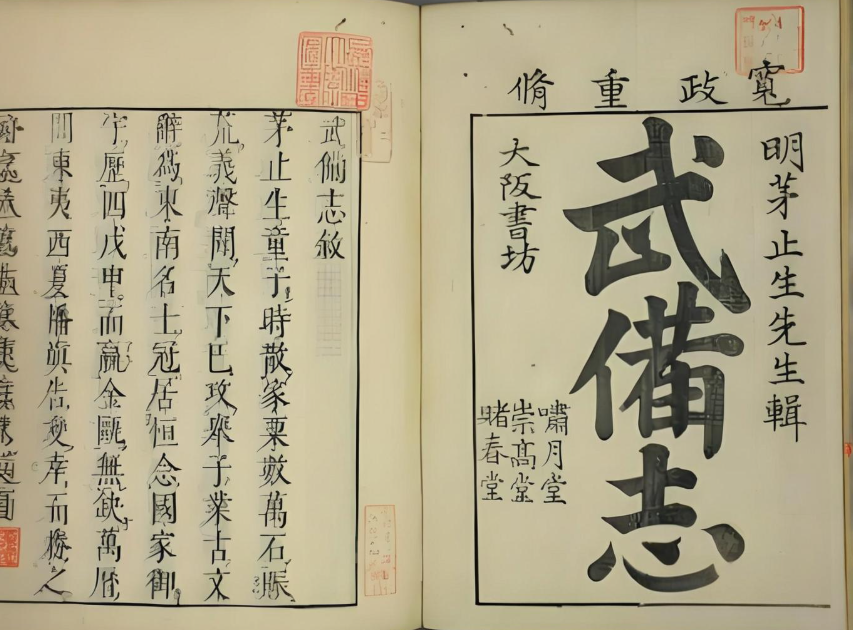 寛政重脩
明茅止生先生輯
武備志
大阪書坊
嘯月堂
崇高堂
睹春堂
武備志敘
茅止生童子時散家粟數萬石賑
荒義聲聞天下已攻舉子業古文
辭爲東南名士冠居恒念國家御
宇歷四戊申而贏金甌無缺萬曆
間東夷西夏播滇告變幸而勝之